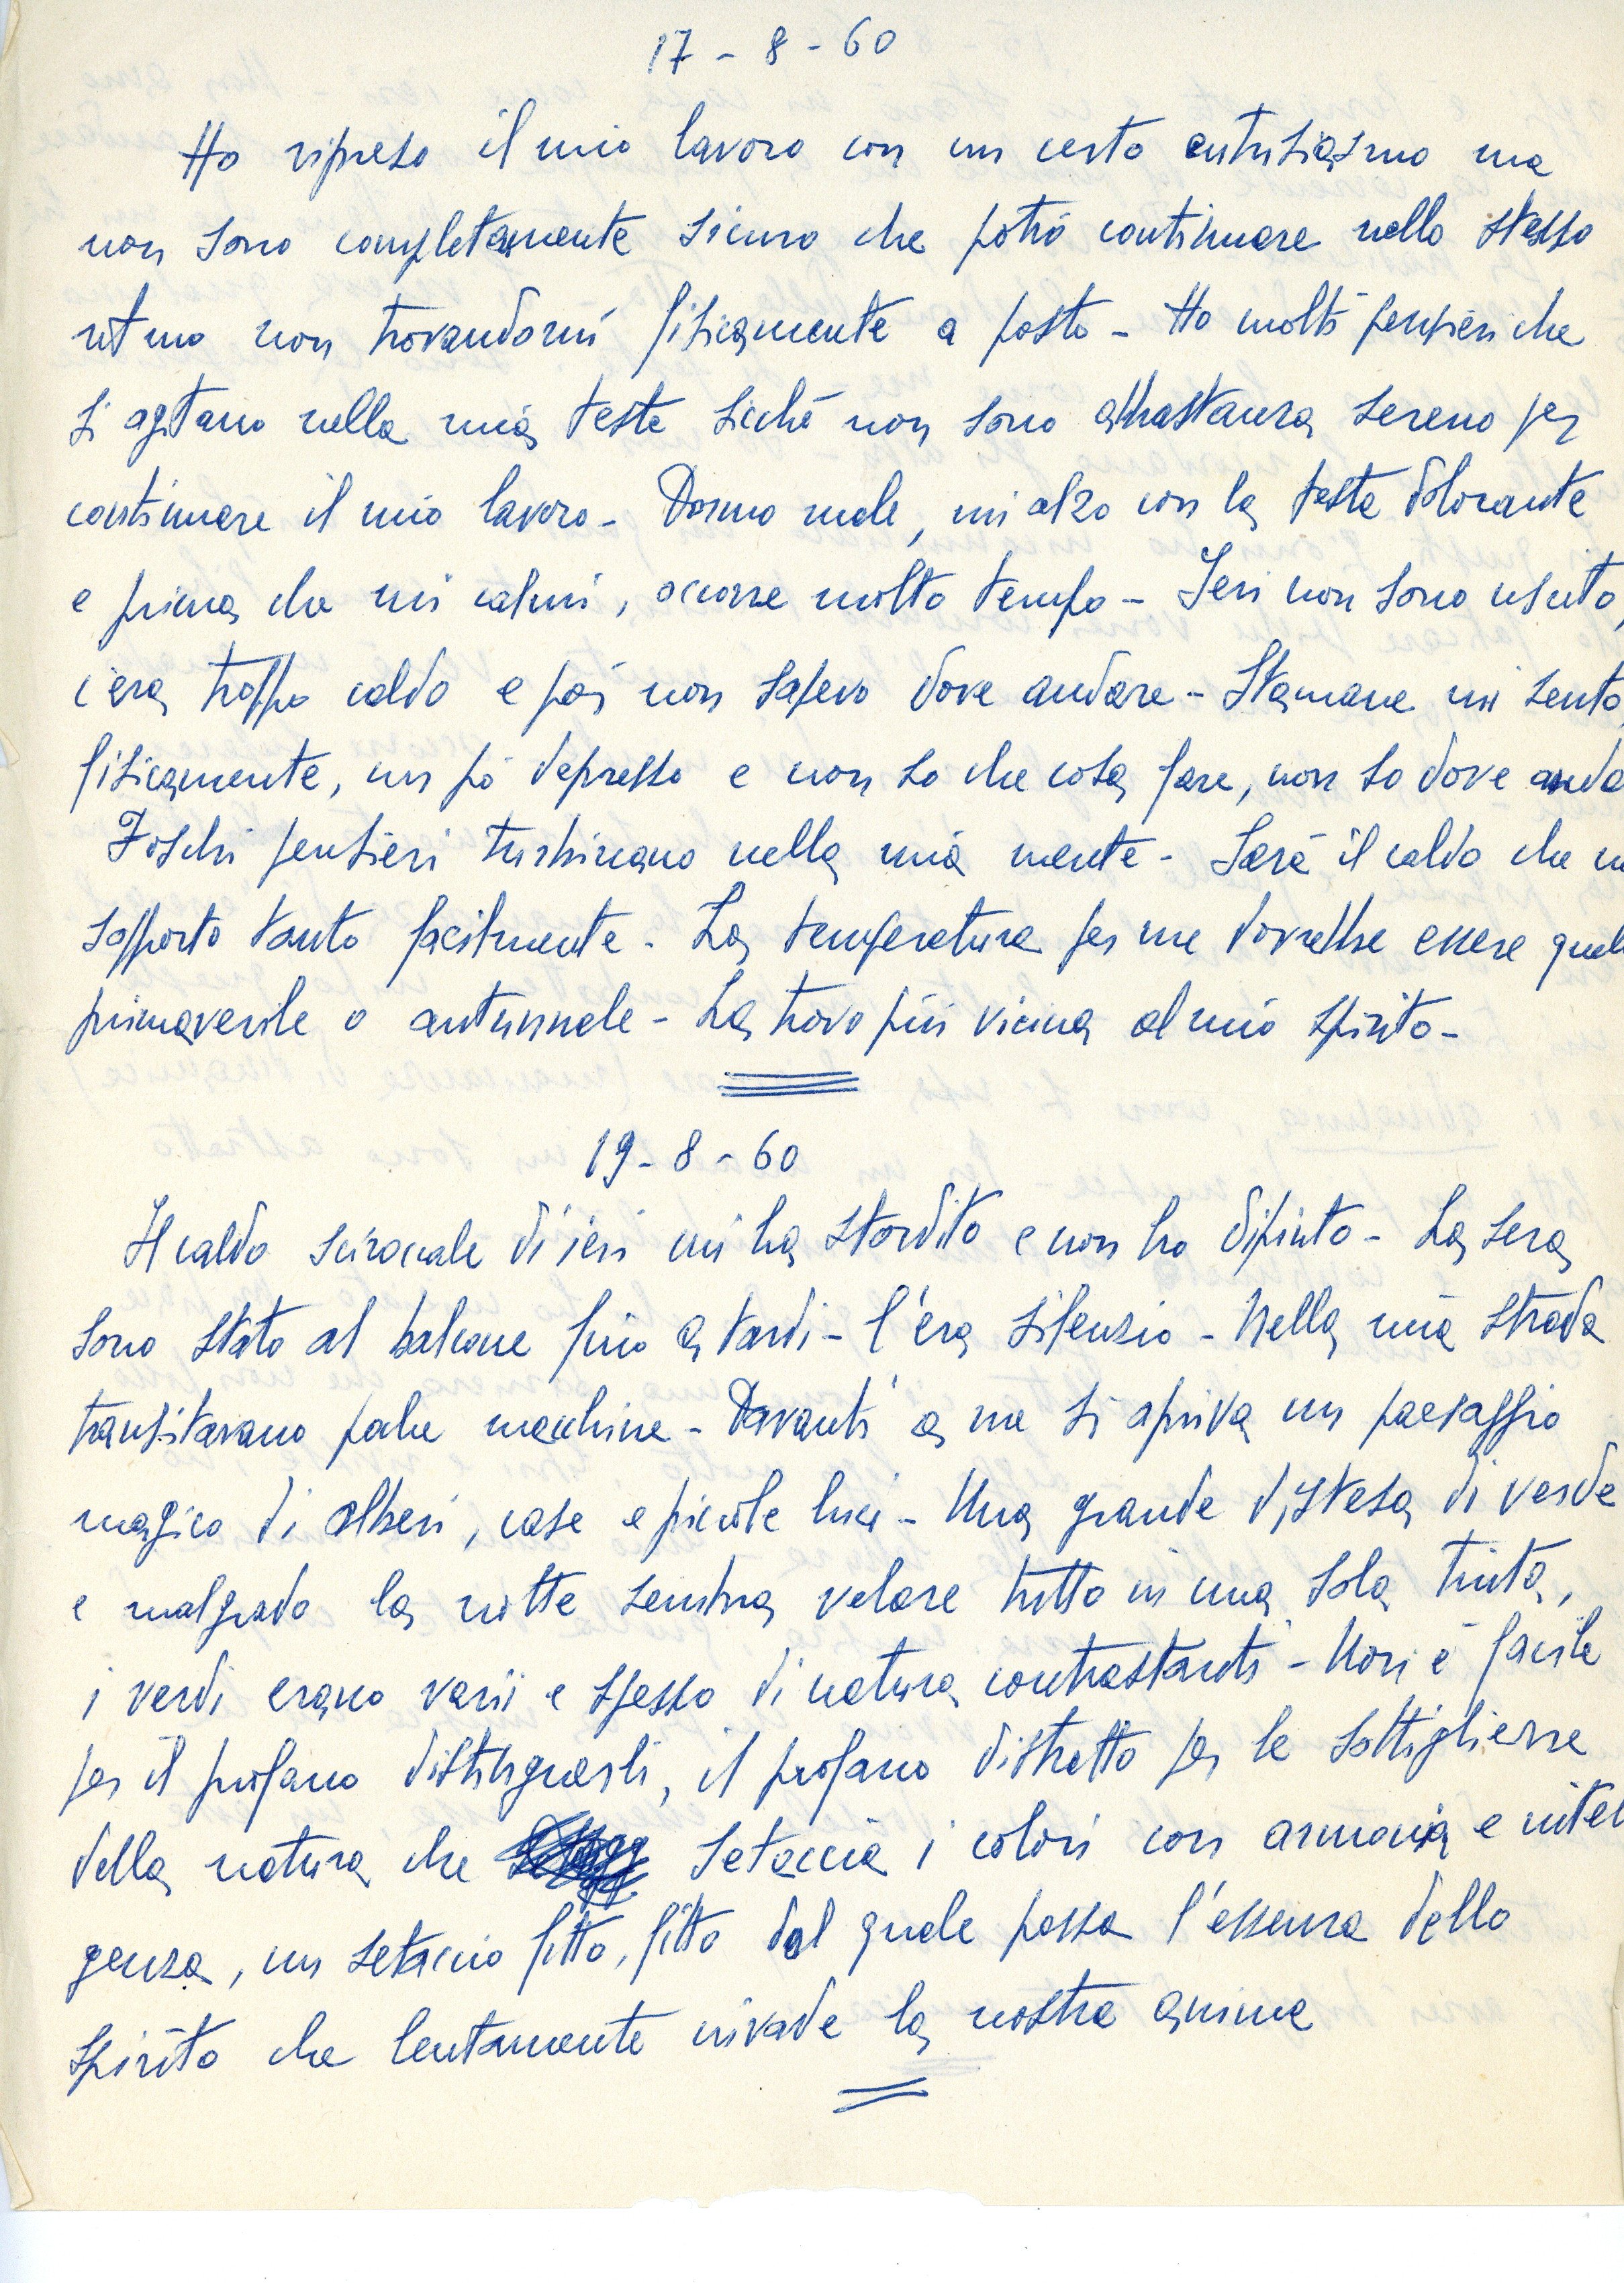 17 - 8 - 60
Ho ripreso il mio lavoro con un certo entusiasmo ma
non sono completamente sicuro che potrò continuare nello stesso
ritmo non trovandomi fisicamente a posto - Ho molti pensieri che
si agitano nella mia testa sicché non sono abbastanza sereno per
continuare il mio lavoro - Dormo male, mi alzo con la testa dolorante
e prima che mi calmi, occorre molto tempo - Ieri non sono uscito,
c'era troppo caldo e poi non sapevo dove andare - Stamane mi sento,
fisicamente, un pò depresso e non so che cosa fare, non so dove anda
Foschi pensieri turbinano nella mia mente - Sarà il caldo che
sopporto tanto facilmente - La temperatura per me dovrebbe essere quel
primaverile o autunnale - La trovo più vicina al mio spirito -
19 - 8 - 60
Il caldo sciroccale di ieri mi ha stordito e non ho dipinto - La sera
sono stato al balcone fino a tardi - C'era silenzio - Nella mia strada
transitavano poche macchine - Davanti a me si apriva un paesaggio
magico di alberi, case e piccole luci - Una grande distesa di verde
e malgrado la notte sembra velare tutto in una sola tinta,
i verdi erano varii e spesso di natura contrastanti - Non è facile
per il profano distinguerli, il profano distratto per le sottigliezze
della natura che setaccia i colori con armonia e intel
genza, un setaccio fitto, fitto dal quale passa l'essenza dello
spirito che lentamente invade la nostra anima